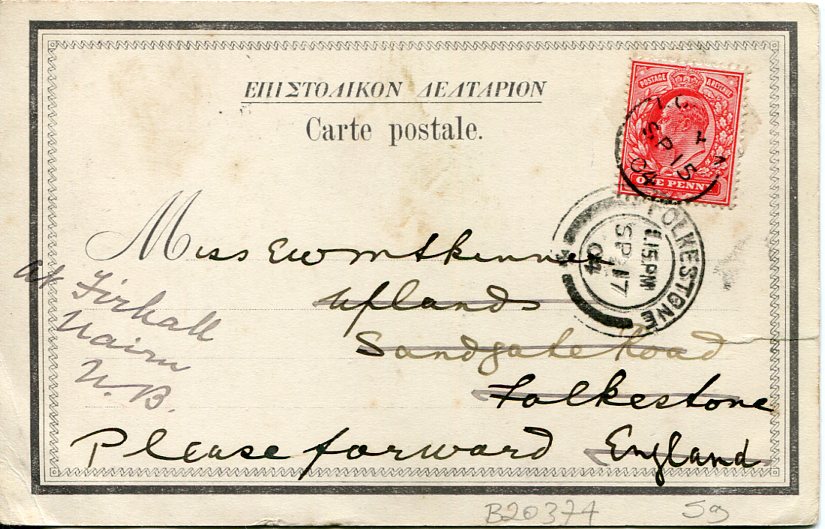 ΕΠΙΣΤΟΛΙΚΟΝ ΔΕΛΤΑΡΙΟΝ
Carte postale.
POSTAGE REVENUE
ONE PENNY
SP 15
04
FOLKESTONE
1.15 PM
SP 17
04
Miss
Uplands
Sandgate Road
Folkestone
England
Please forward
at Firhall
Nairn
N.B.
B20374